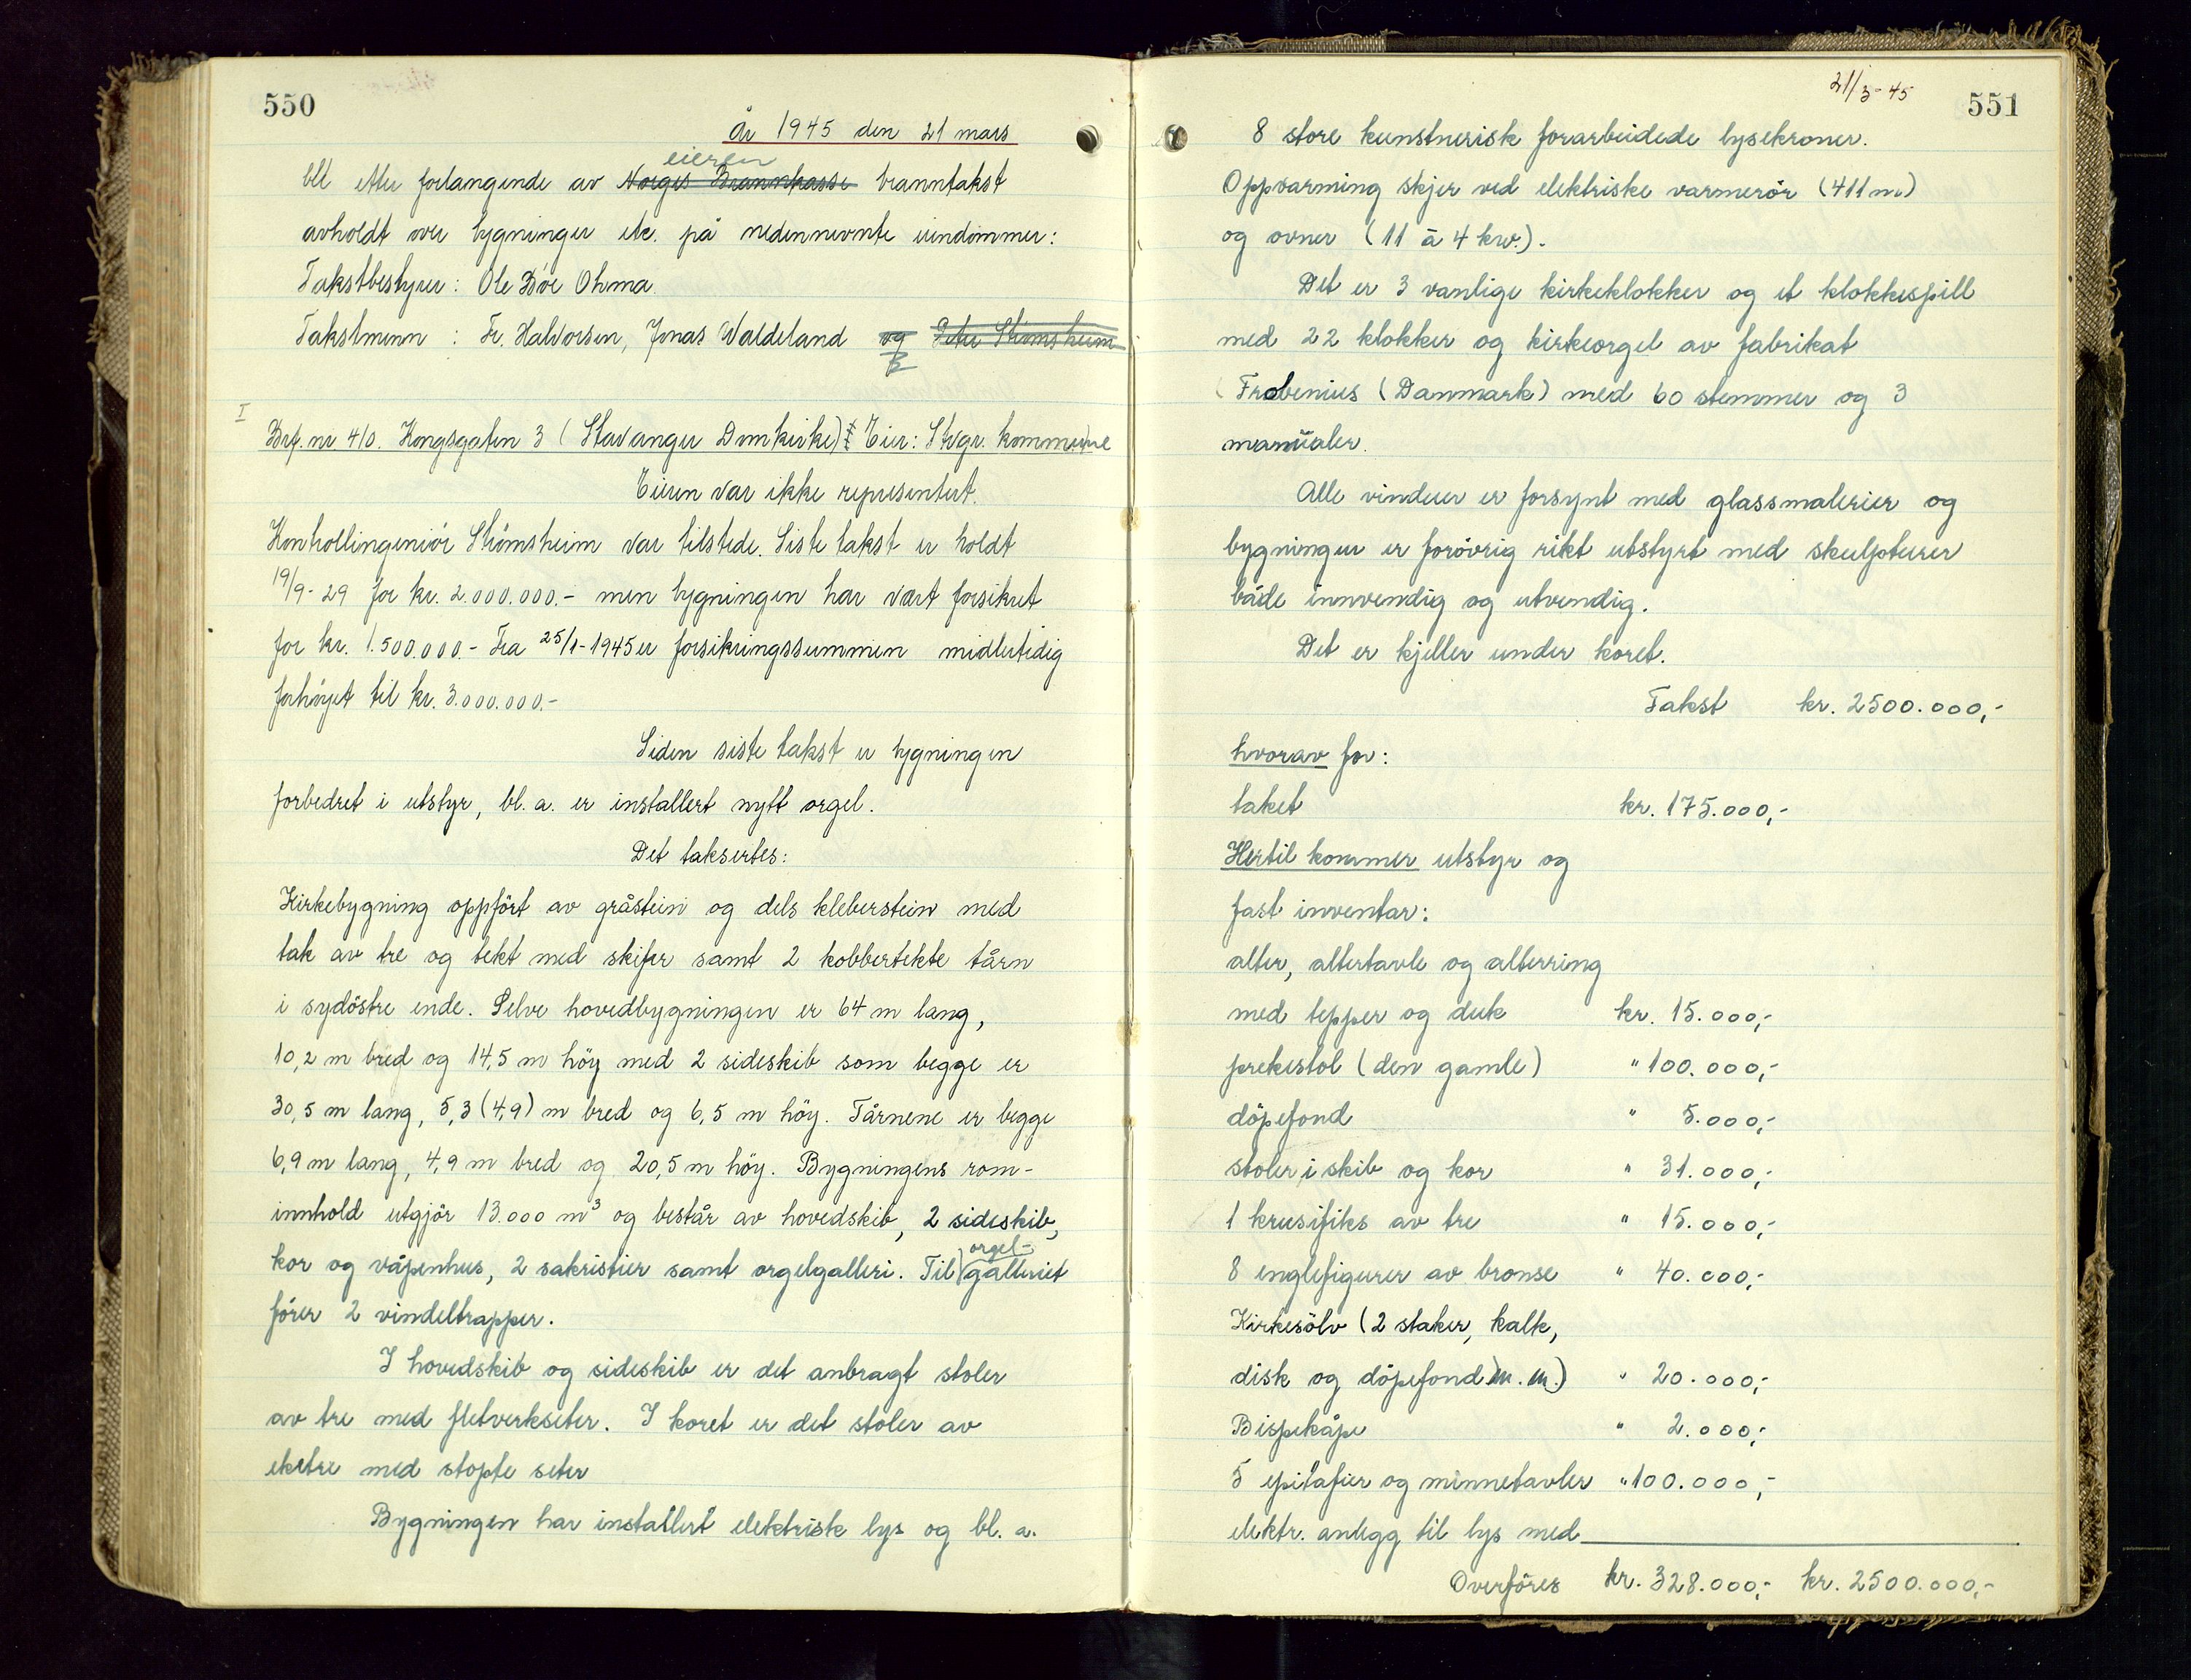 550
År 1945 den 21 mars
eieren
ble etter forlangende av Norges Brannkasse branntakst
avholdt over bygninger etc. på nedennevnte eiendommer:
Takstbestyrer: Ole Böe Ohma.
Takstmenn : Fr. Halvorsen, Jonas Waldeland og Peter Strömsheim
I
Brf. nr. 410. Kongsgaten 3 (Stavanger Domkirke) Eier: Stvgr. kommune
Eieren var ikke representert.
Kontrollingeniör Strömsheim var tilstede. Siste takst er holdt
19/9-29 for kr. 2.000.000.- men bygningen har vært forsikret
for kr. 1.500.000.- Fra 25/1-1945 er forsikringssummen midlertidig
forhöyet til kr. 3.000.000.-
Siden siste takst er bygningen
forbedret i utstyr, bl. a. er installert nytt orgel.
Det taksertes:
Kirkebygning oppfört av gråstein og dels kleberstein med
tak av tre og tekt med skifer samt 2 kobbertekte tårn
i sydöstre ende. Selve hovedbygningen er 64 m lang,
10,2 m bred og 14,5 m höy med 2 sideskib som begge er
30,5 m lang, 5,3 (4,9) m bred og 6,5 m höy. Tårnene er begge
6,9 m lang, 4,9 m bred og 20,5 m höy. Bygningens rom-
innhold utgjör 13.000 m³ og består av hovedskib, 2 sideskib,
kor og våpenhus, 2 sakristier samt orgelgalleri. Til orgel-galleriet
förer 2 vindeltrapper.
I hovedskib og sideskib er det anbragt stoler
av tre med fletverkseter. I koret er det stoler av
eketre med stopte seter
Bygningen har installert elektrisk lys og bl. a.
21/3-45
551
8 store kunstnerisk forarbeidede lysekroner.
Oppvarming skjer ved elektriske varmerör (411 m)
og ovner (11 à 4 kw.).
Det er 3 vanlige kirkeklokker og et klokkespill
med 22 klokker og kirkeorgel av fabrikat
Frobenius (Danmark) med 60 stemmer og 3
manualer.
Alle vinduer er forsynt med glassmalerier og
bygningen er forövrig rikt utstyrt med skulpturer
både innvendig og utvendig.
Det er kjeller under koret.
Takst kr. 2500.000,-
hvorav for:
taket kr. 175.000,-
Hertil kommer utstyr og
fast inventar:
alter, altertavle og alterring
med tepper og duk kr. 15.000,-
prekestol (den gamle) " 100.000,-
döpefond " 5.000,-
stoler i skib og kor " 31.000,-
1 krusifiks av tre " 15.000,-
8 englefigurer av bronse " 40.000,-
Kirkesölv (2 staker, kalk,
disk og döpefond m.m.) " 20.000,-
Bispekåpe " 2.000,-
5 epitafier og minnetavler " 100.000,-
elektr. anlegg til lys med
Overföres kr. 328.000,- kr. 2500.000,-